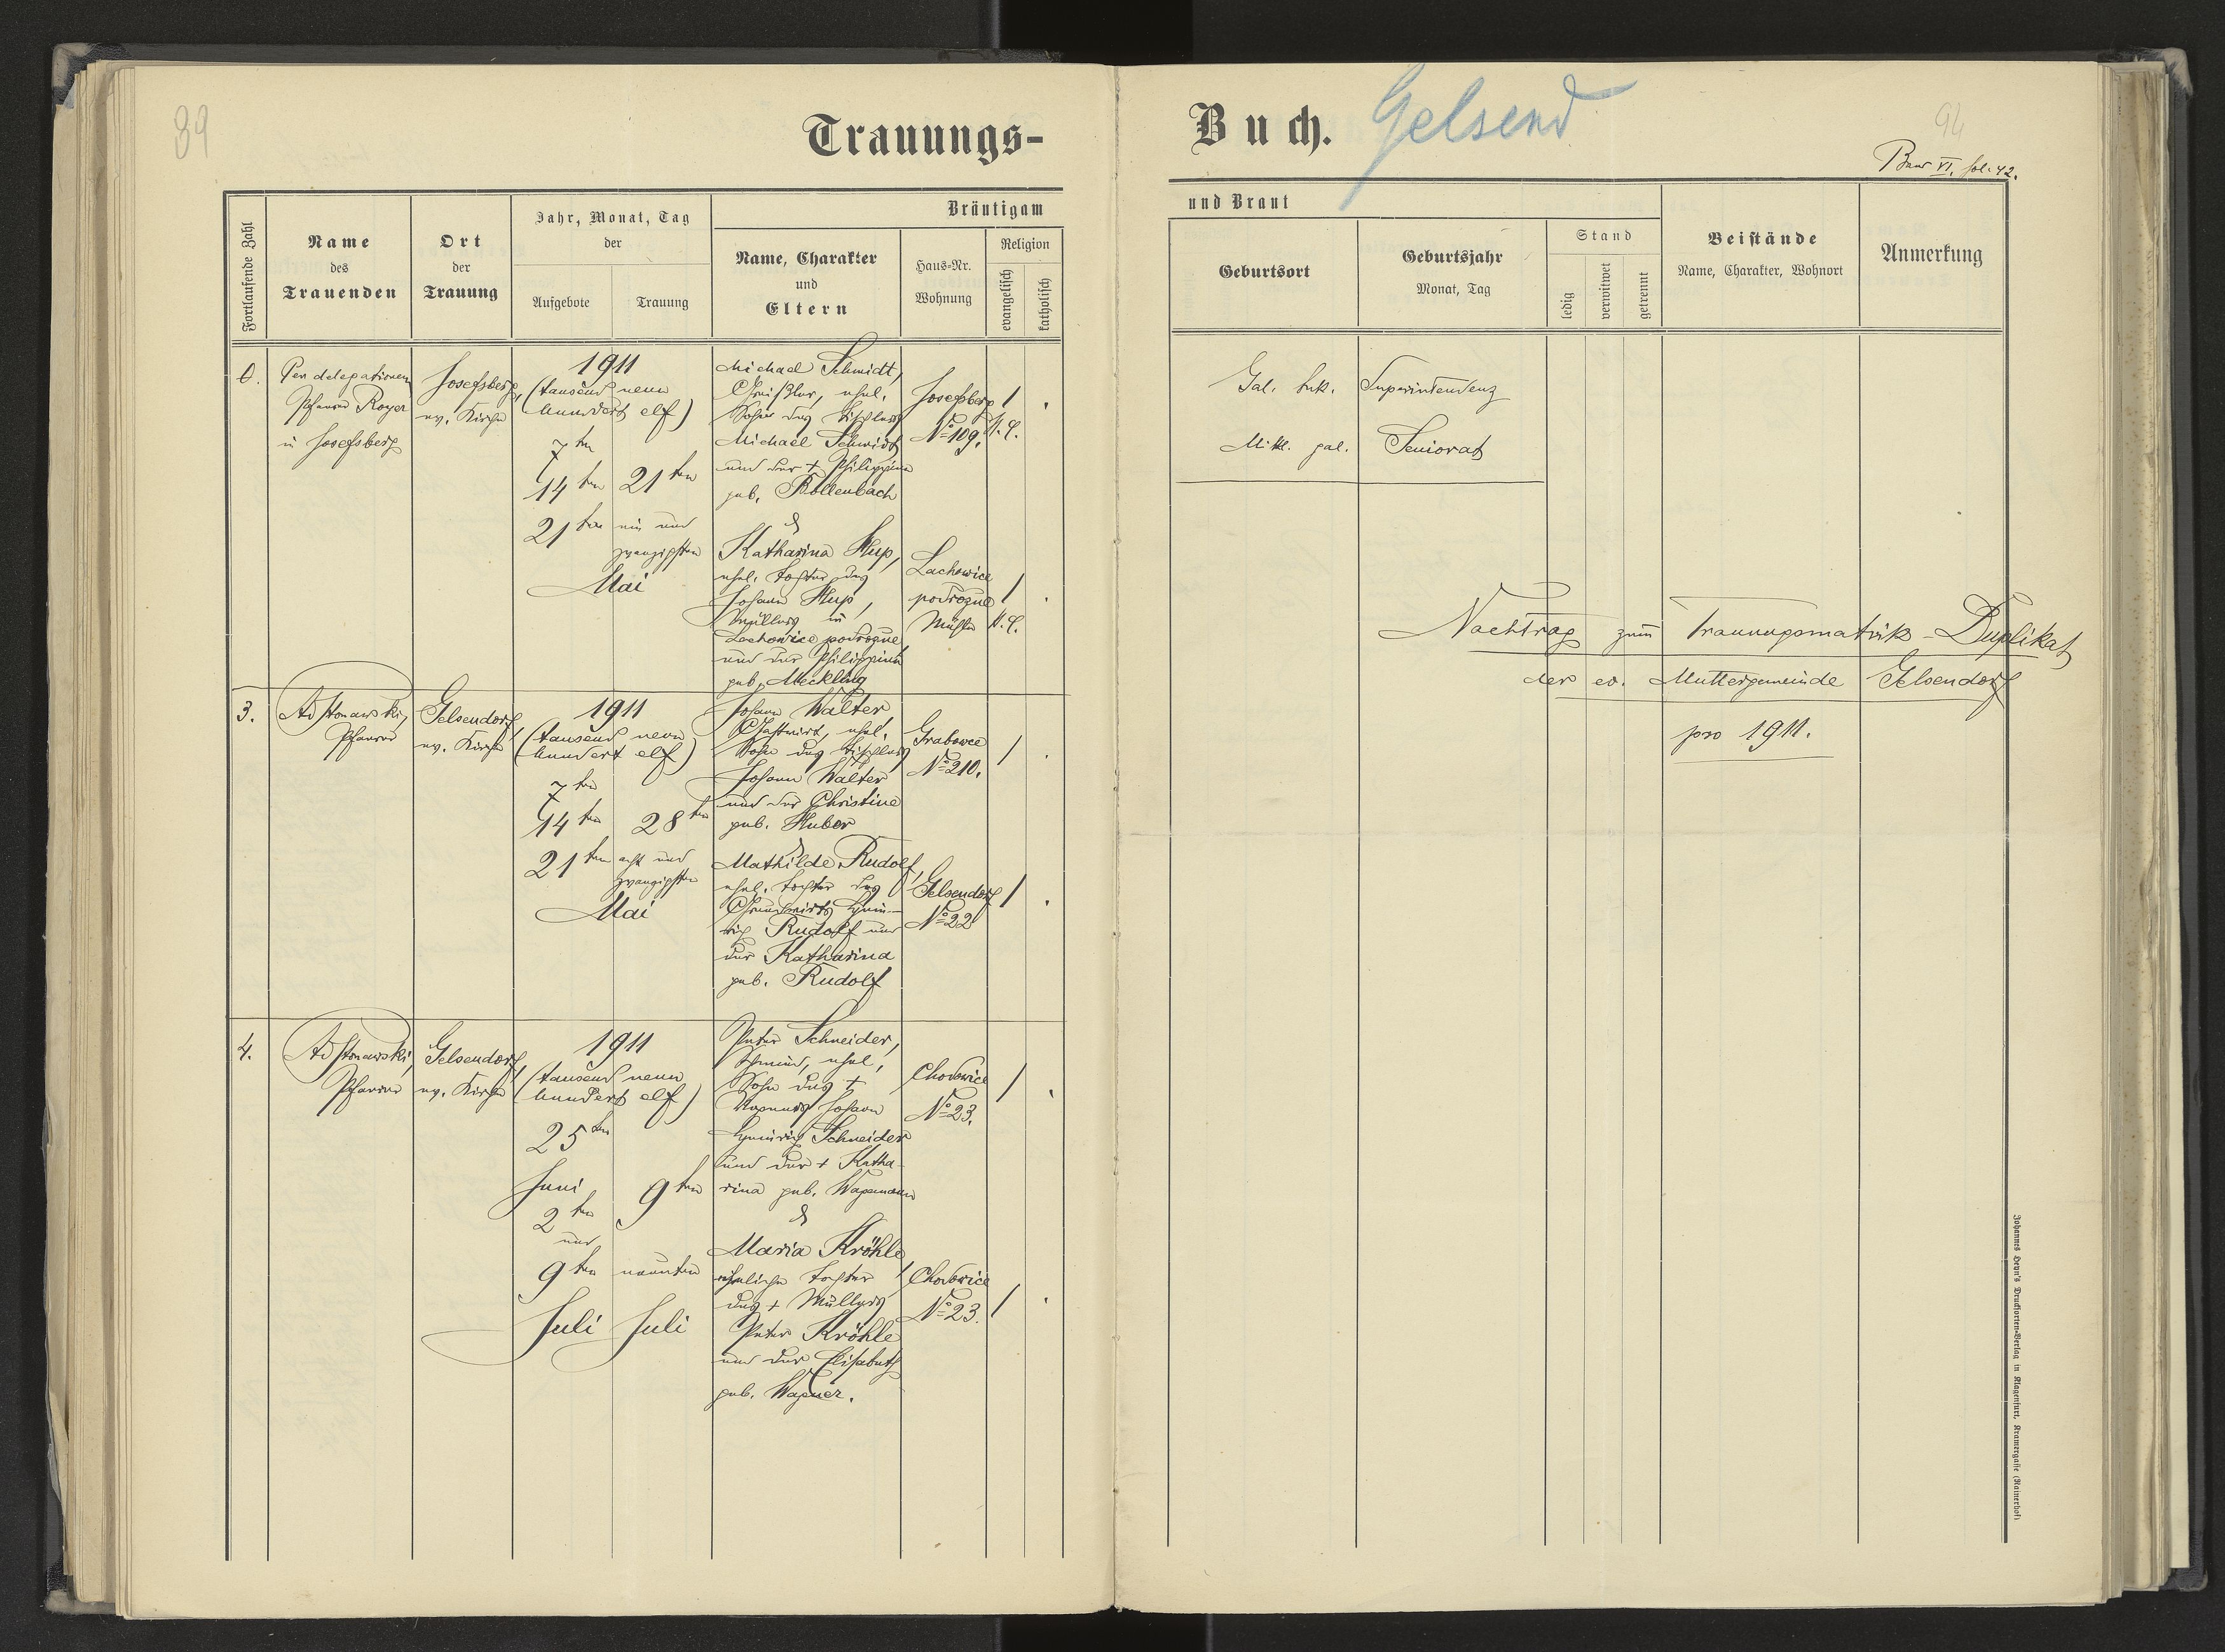 89
Trauungs-
Fortlaufende Zahl
Name
des
Trauenden
Ort
der
Trauung
Jahr, Monat, Tag
der
Aufgebote
Trauung
Bräutigam
Name, Charakter
und
Eltern
Haus-Nr.
Wohnung
Religion
evangelisch
katholisch
0.
Per delegationem
Pfarrer Royer
in Josefsberg
Josefsberg,
ev. Kirche
1911
(tausend neun
hundert elf)
7ten
14ten 21ten
21ten ein und
zwanzigsten
Mai
Michael Schmidt,
ehel.
Sohn des Tischlers
Michael Schmidt
und der + Philippine
geb. Bollenbach
&
Katharina Hup,
ehel. Tochter des
Johann Hup,
Müllers in
Lachowice podrozne
und der Philippine
geb. Meckling
Josefsberg
№ 109.
1
H.C.
Lachowice
podrozne
Mühle
1
H.C.
3.
Pfarrer
Gelsendorf,
ev. Kirche
1911
(tausend neun
hundert elf)
7ten
14ten 28ten
21ten acht und
zwanzigsten
Mai
Johann Walter
Gastwirt, ehel.
Sohn des Tischlers
Johann Walter
und der Christine
geb. Huber
&
Mathilde Rudolf,
ehel. Tochter des
Grundwirts Hein-
rich Rudolf und
der Katharina
geb. Rudolf
Grabowce
№ 210.
1
Gelsendorf
№ 22
1
4.
Pfarrer
Gelsendorf,
ev. Kirche
1911
(tausend neun
hundert elf)
25ten
Juni
2ten
und
9ten
Juli
9ten
neunten
Juli
Peter Schneider,
Schmied, ehel.
Sohn des +
Johann
Heinrich Schneider
und der + Katha-
rina geb. Wagemann
&
Maria Kröhle,
eheliche Tochter
des + Müllers
Peter Kröhle
und der Elisabeth
geb. Wagner.
Chodowice
№ 23.
1
Chodowice
№ 23.
1
Buch.
Gelsend
94
VI, fol. 42.
und Braut
Geburtsort
Geburtsjahr
Monat, Tag
Stand
ledig
verwitwet
getrennt
Beistände
Name, Charakter, Wohnort
Anmerkung
Gal. buk. Superintendenz
Mittl. gal. Seniorat
Nachtrag zum Trauungsmatrik-Duplikat
der ev. Muttergemeinde Gelsendorf
pro 1911.
Johannes Heyn's Drucksorten-Verlag in Klagenfurt, Kramergasse (Rainerhof)